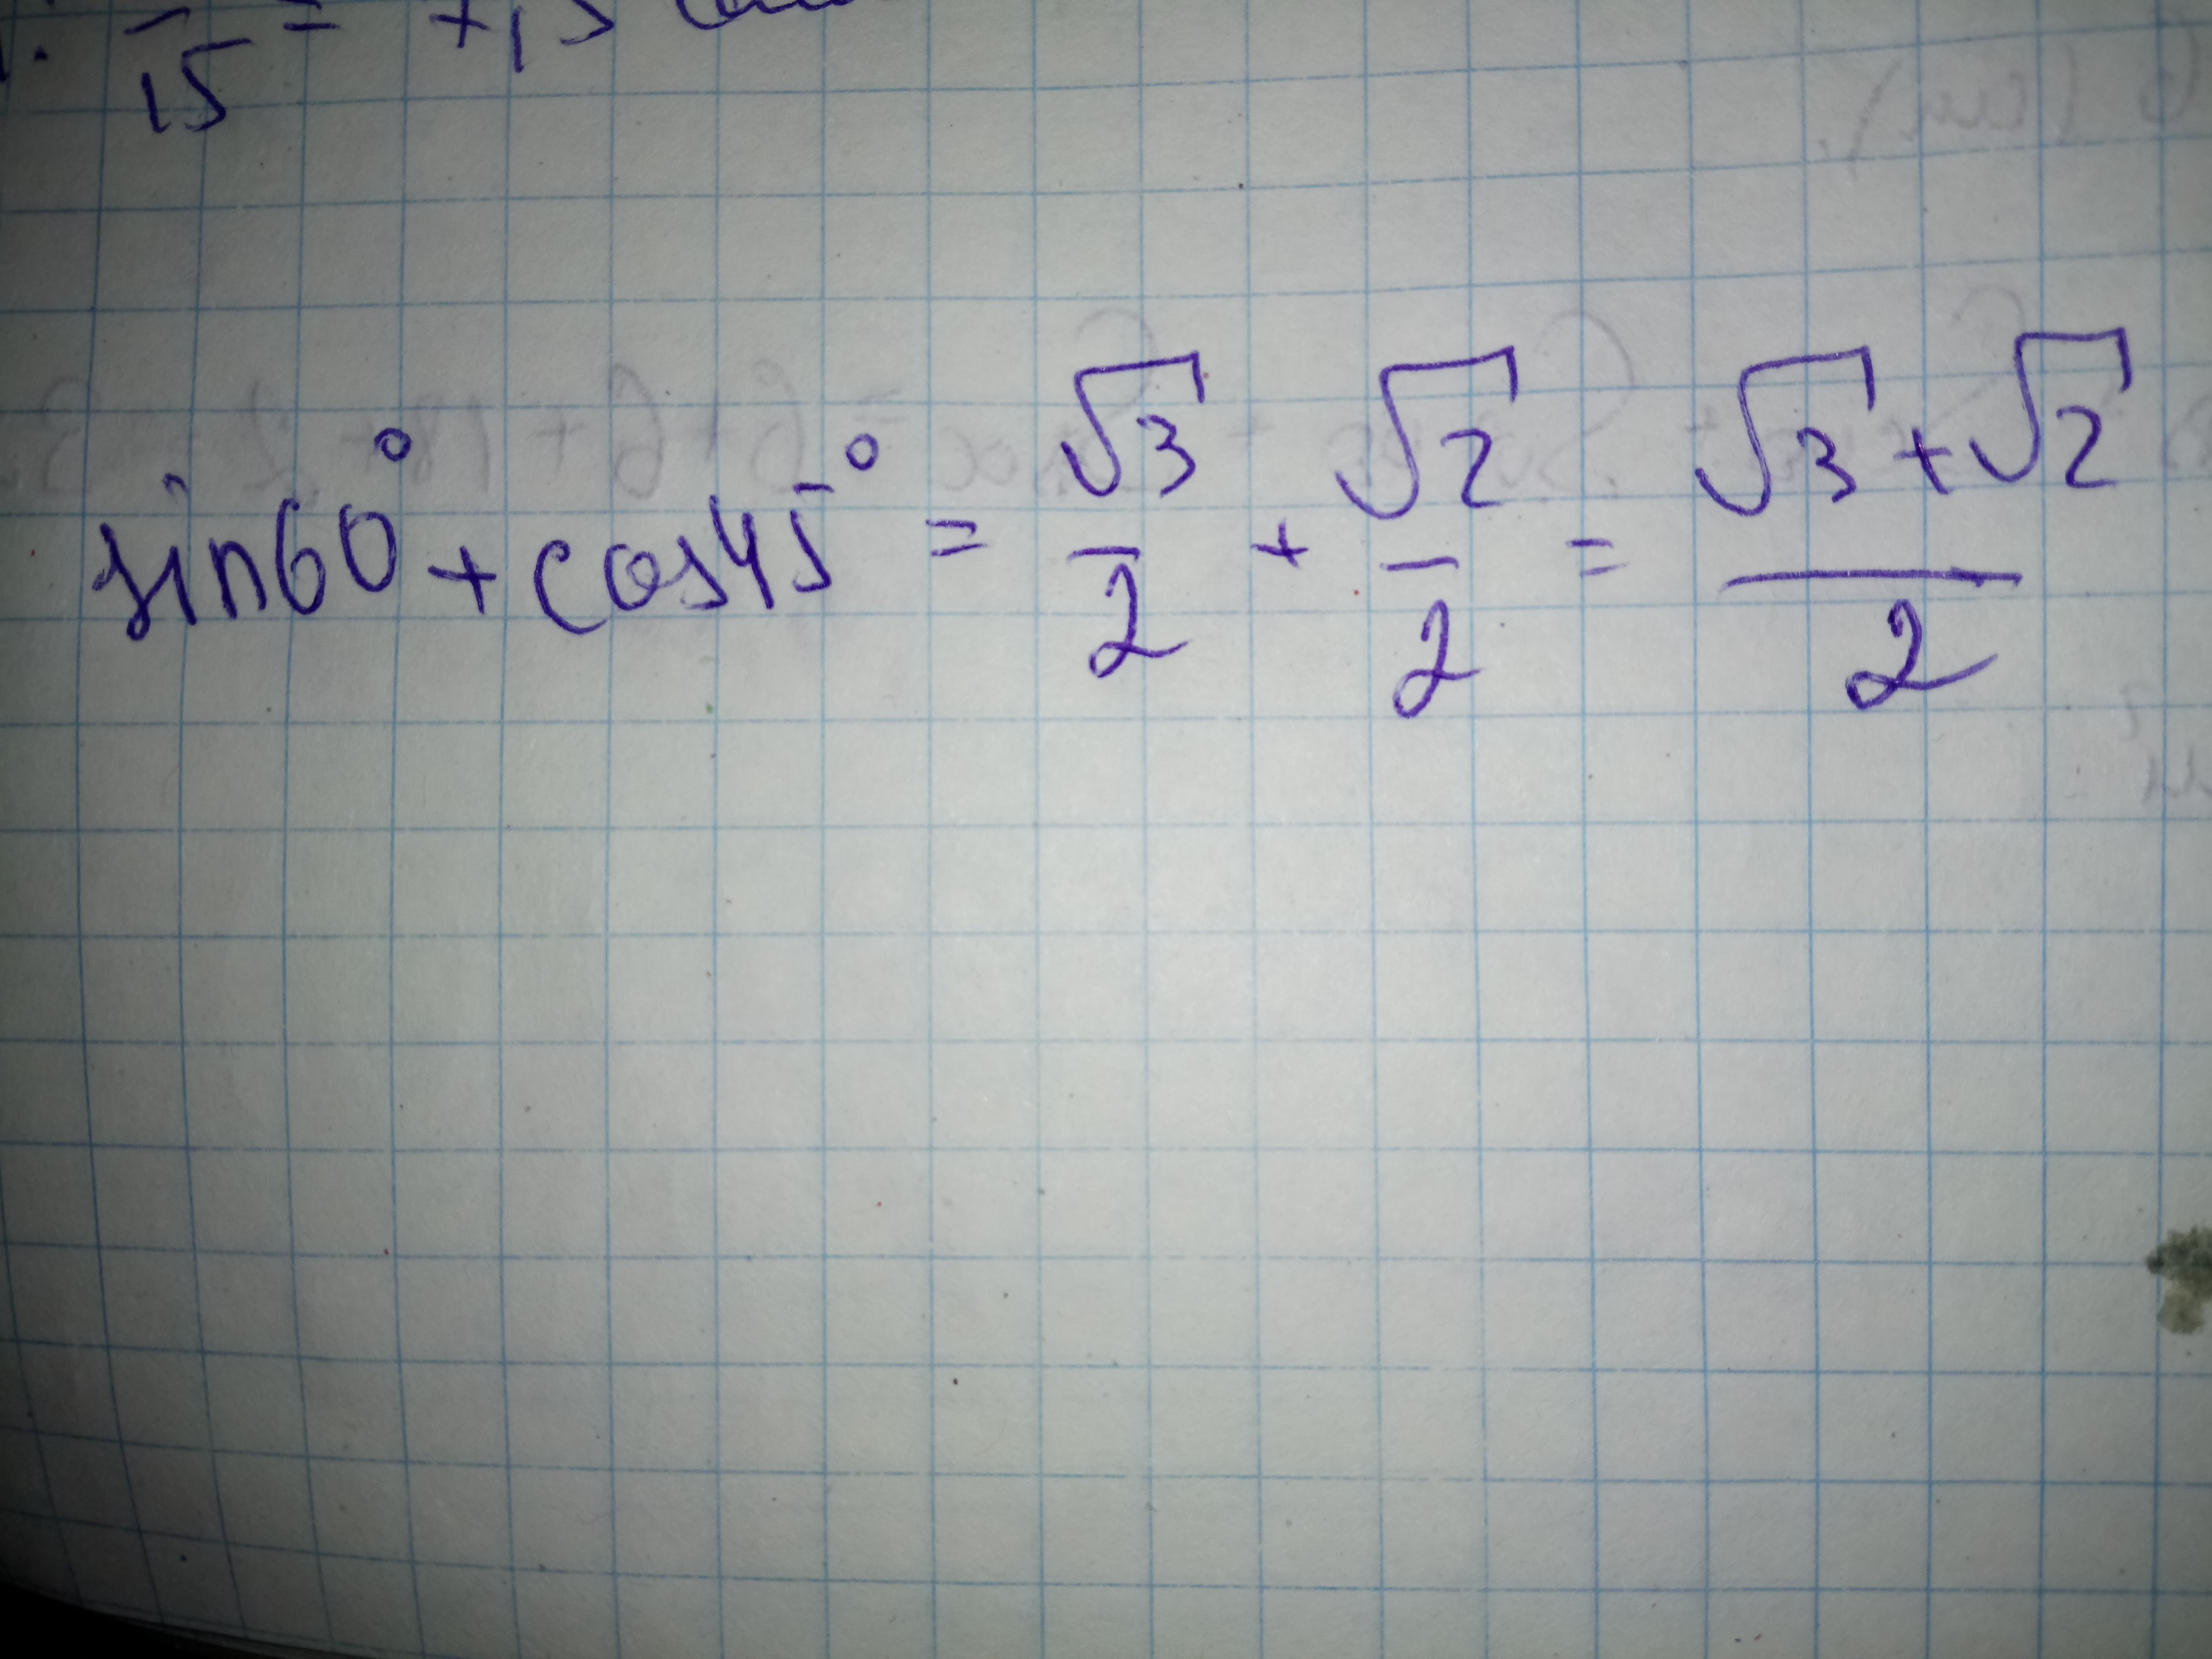 15 =
sin60° + cos45° = √3/2 + √2/2 = (√3+√2)/2